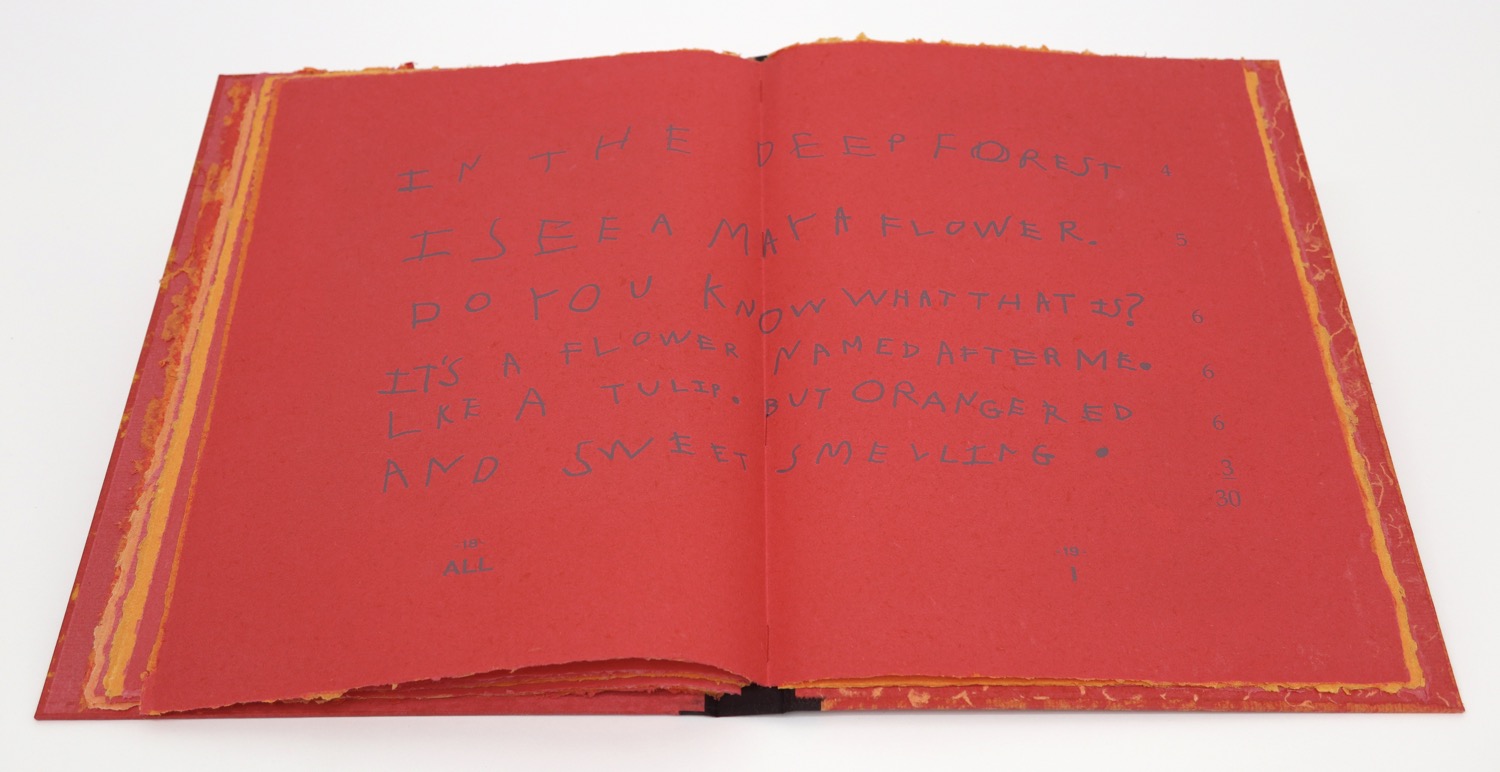 IN THE DEEP FOREST 4
I SEE A MAYA FLOWER. 5
DO YOU KNOW WHAT THAT IS? 6
IT'S A FLOWER NAMED AFTER ME. 6
LKE A TULIP. BUT ORANGE RED 6
AND SWEET SMELLING. 3
30
-18-
ALL
-19-
I